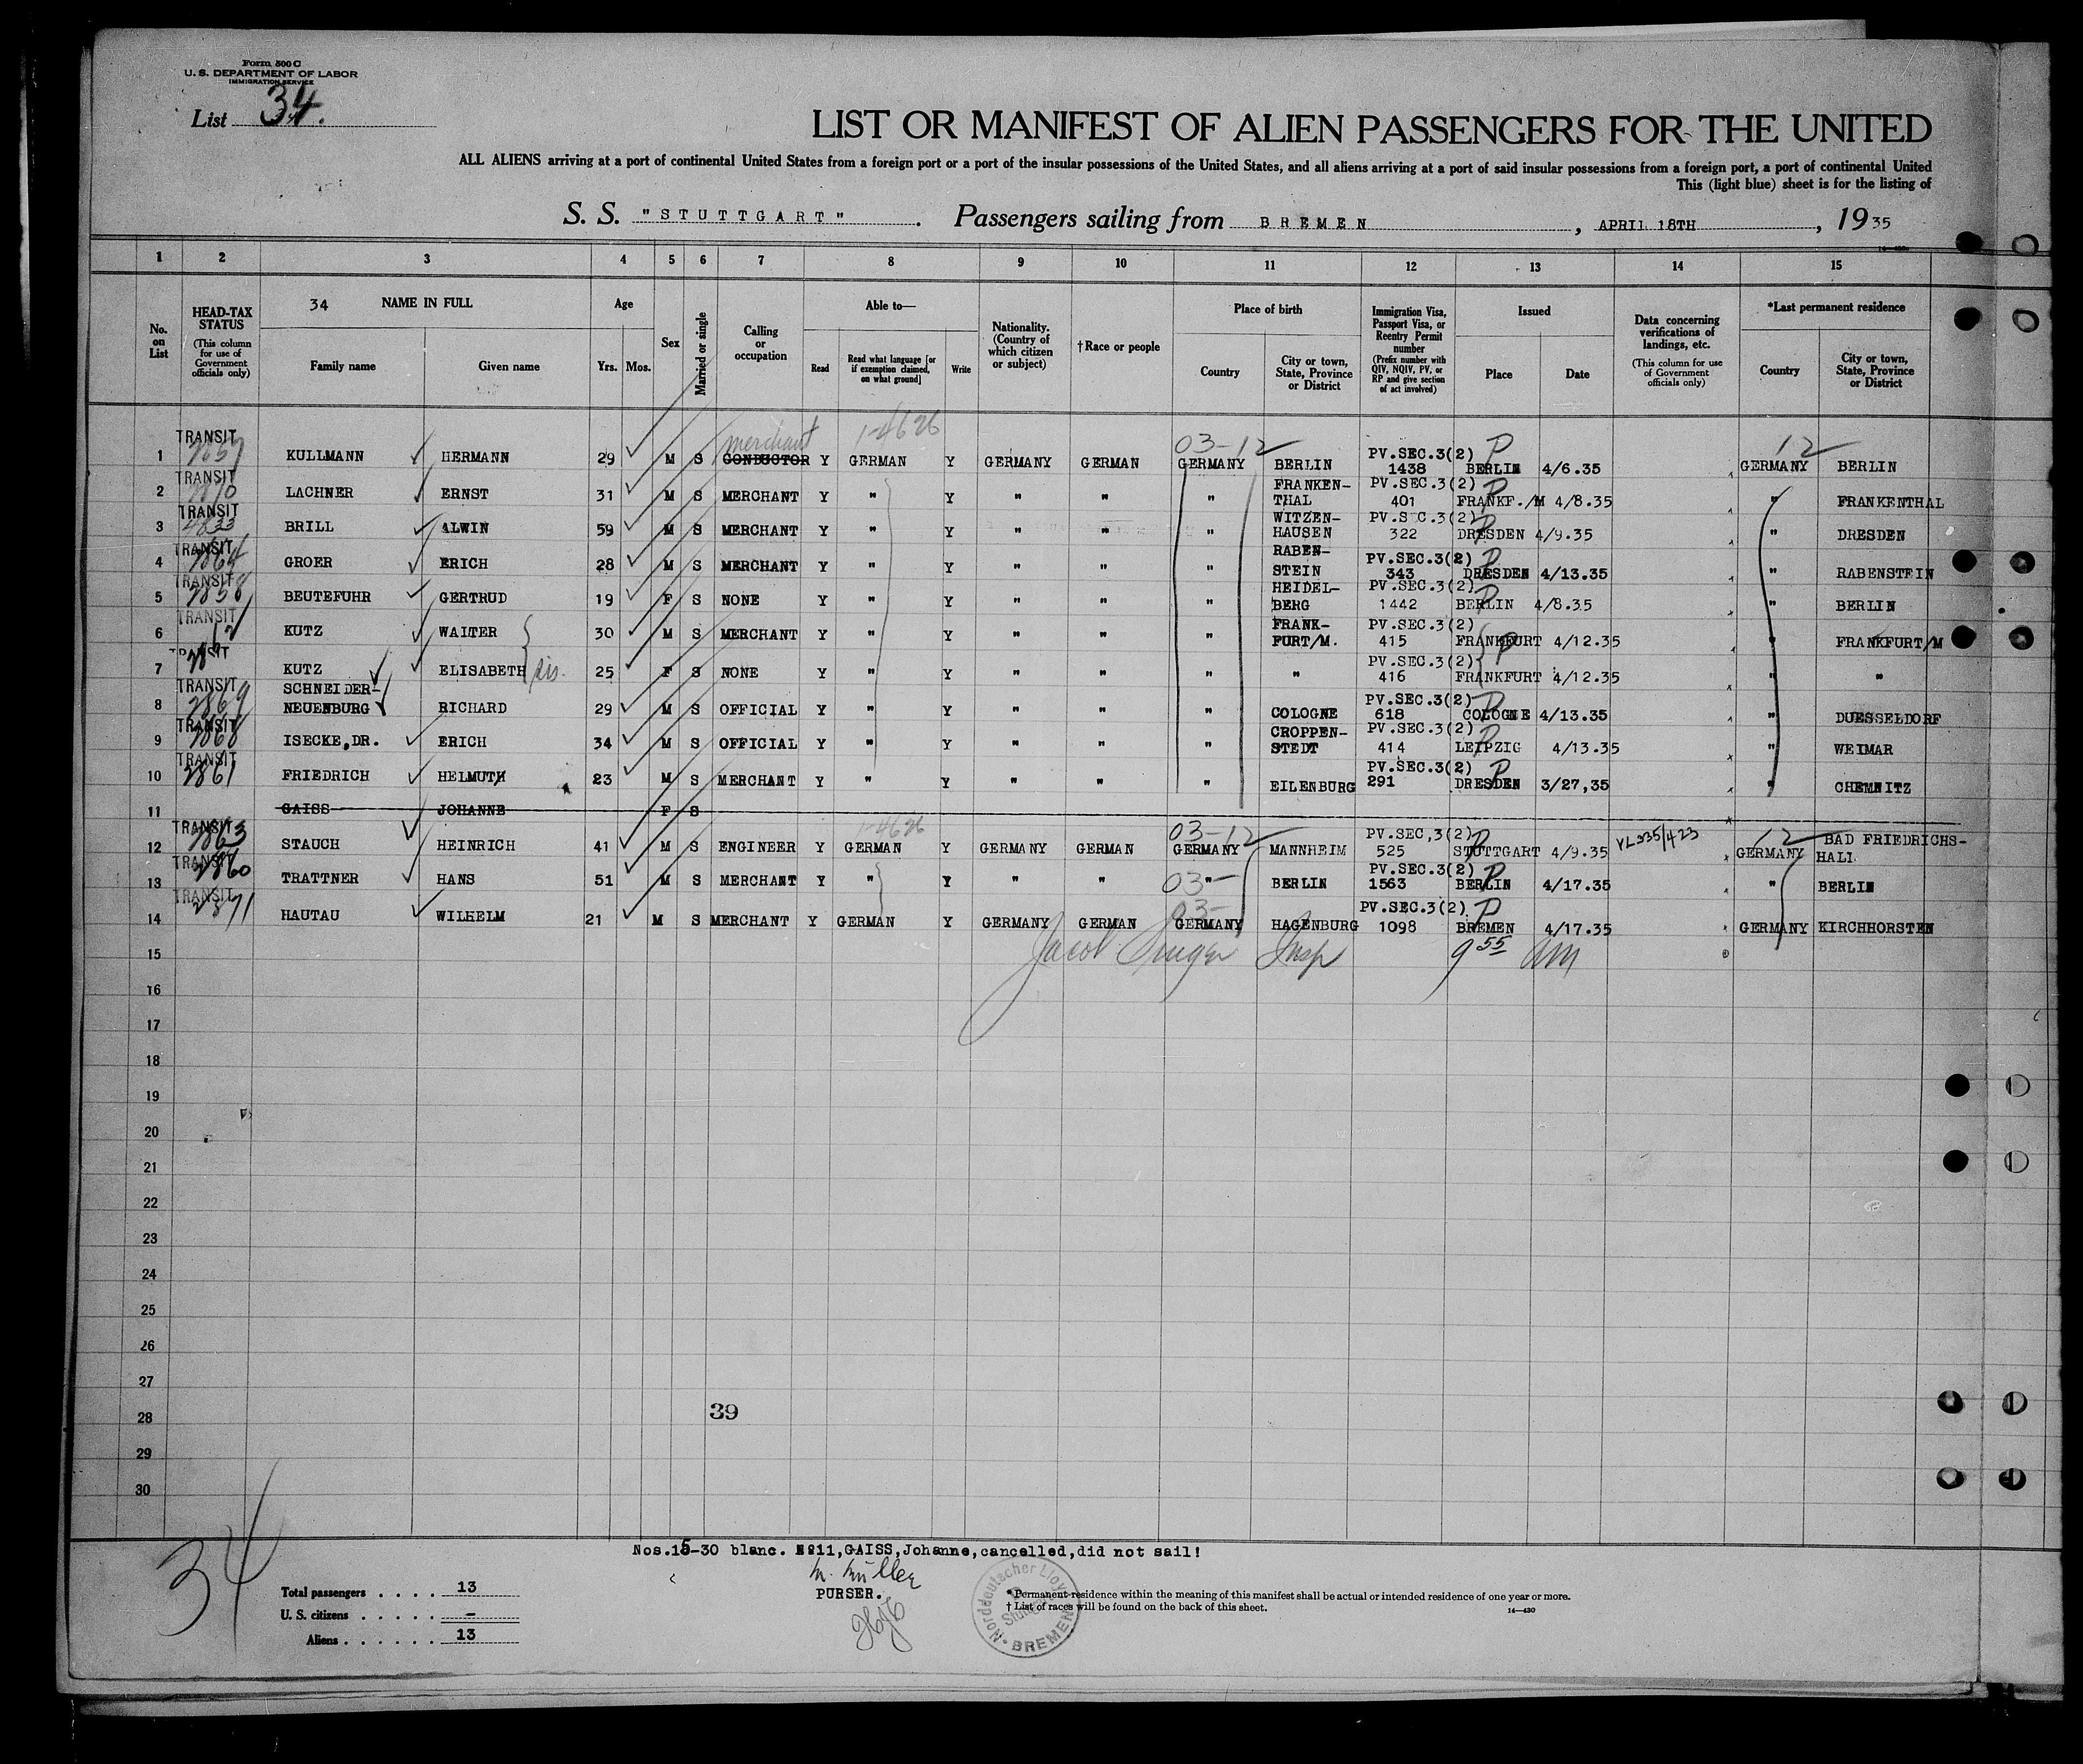 Form 500 C
U. S. DEPARTMENT OF LABOR
IMMIGRATION SERVICE
List 34.
LIST OR MANIFEST OF ALIEN PASSENGERS FOR THE UNITED
ALL ALIENS arriving at a port of continental United States from a foreign port or a port of the insular possessions of the United States, and all aliens arriving at a port of said insular possessions from a foreign port, a port of continental United
This (light blue) sheet is for the listing of
S. S. "STUTTGART". Passengers sailing from BREMEN, APRIL 18TH, 1935
1 2 3 4 5 6 7 8 9 10 11 12 13 14 15
No. on List
HEAD-TAX STATUS (This column for use of Government officials only)
34 NAME IN FULL
Family name Given name
Age
Yrs. Mos.
Sex
Married or single
Calling or occupation
Able to—
Read
Read what language [or if exemption claimed, on what ground]
Write
Nationality. (Country of which citizen or subject)
†Race or people
Place of birth
Country
City or town, State, Province or District
Immigration Visa, Passport Visa, or Reentry Permit number (Prefix number with QIV, NQIV, PV, or RP and give section of act involved)
Issued
Place Date
Data concerning verifications of landings, etc. (This column for use of Government officials only)
*Last permanent residence
Country
City or town, State, Province or District
merchant 1-4626 03-12 P 12
1 TRANSIT KULLMANN HERMANN 29 M S CONDUCTOR Y GERMAN Y GERMANY GERMAN GERMANY BERLIN PV.SEC.3(2) 1438 BERLIN 4/6.35 GERMANY BERLIN
2 TRANSIT LACHNER ERNST 31 M S MERCHANT Y " Y " " " FRANKEN-THAL PV.SEC.3(2) 401 FRANKF./M 4/8.35 " FRANKENTHAL
3 TRANSIT 4833 BRILL ALWIN 59 M S MERCHANT Y " Y " " " WITZEN-HAUSEN PV.S C.3(2) 322 DRESDEN 4/9.35 " DRESDEN
4 TRANSIT GROER ERICH 28 M S MERCHANT Y " Y " " " RABEN-STEIN PV.SEC.3(2) 343 DRESDEN 4/13.35 " RABENSTEIN
5 TRANSIT 2858 BEUTEFUHR GERTRUD 19 F S NONE Y " Y " " " HEIDEL-BERG PV.SEC.3(2) 1442 BERLIN 4/8.35 " BERLIN
6 TRANSIT KUTZ WALTER 30 M S MERCHANT Y " Y " " " FRANK-FURT/M. PV.SEC.3(2) 415 FRANKFURT 4/12.35 " FRANKFURT/M
7 TRANSIT KUTZ ELISABETH sis. 25 F S NONE Y " Y " " " " PV.SEC.3(2) 416 FRANKFURT 4/12.35 " "
8 TRANSIT 2869 SCHNEIDER-NEUENBURG RICHARD 29 M S OFFICIAL Y " Y " " " COLOGNE PV.SEC.3(2) 618 COLOGNE 4/13.35 " DUESSELDORF
9 TRANSIT 2868 ISECKE,DR. ERICH 34 M S OFFICIAL Y " Y " " " CROPPEN-STEDT PV.SEC.3(2) 414 LEIPZIG 4/13.35 " WEIMAR
10 TRANSIT 2861 FRIEDRICH HELMUTH 23 M S MERCHANT Y " Y " " " EILENBURG PV.SEC.3(2) 291 DRESDEN 3/27,35 " CHEMNITZ
11 GAISS JOHANNE F S
1-4626 03-12 12
12 TRANSIT 2863 STAUCH HEINRICH 41 M S ENGINEER Y GERMAN Y GERMANY GERMAN GERMANY MANNHEIM PV.SEC,3(2) 525 STUTTGART 4/9.35 VL335/423 GERMANY BAD FRIEDRICHS-HALL
13 TRANSIT 2860 TRATTNER HANS 51 M S MERCHANT Y " Y " " 03- " BERLIN PV.SEC.3(2) 1563 BERLIN 4/17.35 " BERLIN
14 TRANSIT 2871 HAUTAU WILHELM 21 M S MERCHANT Y GERMAN Y GERMANY GERMAN 03- GERMANY HAGENBURG PV.SEC.3(2) 1098 BREMEN 4/17.35 GERMANY KIRCHHORSTEN
15 Jacob Insp 9 55 am
16
17
18
19
20
21
22
23
24
25
26
27
28 39
29
30
34
Nos.15-30 blanc. No11,GAISS,Johanne,cancelled,did not sail!
M. Müller
PURSER.
Total passengers . . . . 13
U. S. citizens . . . . . –
Aliens . . . . . . 13
Norddeutscher Lloyd BREMEN
*Permanent residence within the meaning of this manifest shall be actual or intended residence of one year or more.
† List of races will be found on the back of this sheet.
14—430